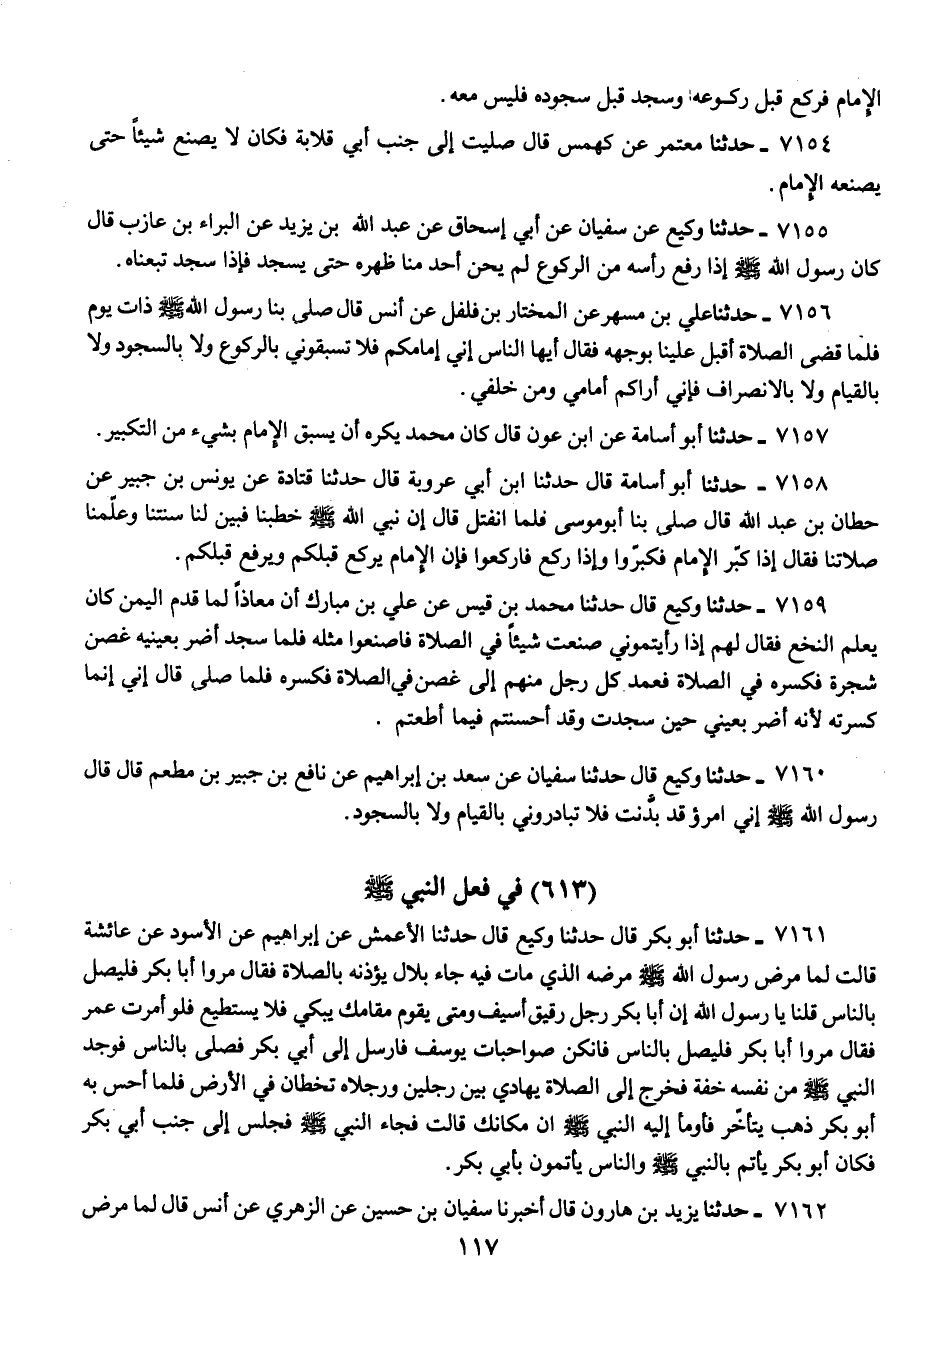 الإمام فركع قبل ركوعه وسجد قبل سجوده فليس معه.
٧١٥٤ ـ حدثنا معتمر عن كهمس قال صليت إلى جنب أبي قلابة فكان لا يصنع شيئاً حتى
يصنعه الإمام.
٧١٥٥ ـ حدثنا وكيع عن سفيان عن أبي إسحاق عن عبد الله بن يزيد عن البراء بن عازب قال
كان رسول الله ﷺ إذا رفع رأسه من الركوع لم يحن أحد منا ظهره حتى يسجد فإذا سجد تبعناه.
٧١٥٦ ـ حدثنا علي بن مسهر عن المختار بن فلفل عن أنس قال صلى بنا رسول الله ﷺ ذات يوم
فلما قضى الصلاة أقبل علينا بوجهه فقال أيها الناس إني إمامكم فلا تسبقوني بالركوع ولا بالسجود ولا
بالقيام ولا بالانصراف فإني أراكم أمامي ومن خلفي.
٧١٥٧ ـ حدثنا أبو أسامة عن ابن عون قال كان محمد يكره أن يسبق الإمام بشيء من التكبير.
٧١٥٨ ـ حدثنا أبو أسامة قال حدثنا ابن أبي عروبة قال حدثنا قتادة عن يونس بن جبير عن
حطان بن عبد الله قال صلى بنا أبوموسى فلما انفتل قال إن نبي الله ﷺ خطبنا فبين لنا سنتنا وعلّمنا
صلاتنا فقال إذا كبّر الإمام فكبّروا وإذا ركع فاركعوا فإن الإمام يركع قبلكم ويرفع قبلكم.
٧١٥٩ ـ حدثنا وكيع قال حدثنا محمد بن قيس عن علي بن مبارك أن معاذاً لما قدم اليمن كان
يعلم النخع فقال لهم إذا رأيتموني صنعت شيئاً في الصلاة فاصنعوا مثله فلما سجد أضر بعينيه غصن
شجرة فكسره في الصلاة فعمد كل رجل منهم إلى غصن في الصلاة فكسره فلما صلى قال إني إنما
كسرته لأنه أضر بعيني حين سجدت وقد أحسنتم فيما أطعتم .
٧١٦٠ ـ حدثنا وكيع قال حدثنا سفيان عن سعد بن إبراهيم عن نافع بن جبير بن مطعم قال قال
رسول الله ﷺ إني امرؤ قد بدُّنت فلا تبادروني بالقيام ولا بالسجود.
(٦١٣) في فعل النبي ﷺ
٧١٦١ ـ حدثنا أبو بكر قال حدثنا وكيع قال حدثنا الأعمش عن إبراهيم عن الأسود عن عائشة
قالت لما مرض رسول الله ﷺ مرضه الذي مات فيه جاء بلال يؤذنه بالصلاة فقال مروا أبا بكر فليصل
بالناس قلنا يا رسول الله إن أبا بكر رجل رقيق أسيف ومتى يقوم مقامك يبكي فلا يستطيع فلو أمرت عمر
فقال مروا أبا بكر فليصل بالناس فانكن صواحبات يوسف فارسل إلى أبي بكر فصلى بالناس فوجد
النبي ﷺ من نفسه خفة فخرج إلى الصلاة يهادي بين رجلين ورجلاه تخطان في الأرض فلما أحس به
أبو بكر ذهب يتأخّر فأومأ إليه النبي ﷺ ان مكانك قالت فجاء النبي ﷺ فجلس إلى جنب أبي بكر
فكان أبو بكر يأتم بالنبي ﷺ والناس يأتمون بأبي بكر.
٧١٦٢ ـ حدثنا يزيد بن هارون قال أخبرنا سفيان بن حسين عن الزهري عن أنس قال لما مرض
١١٧